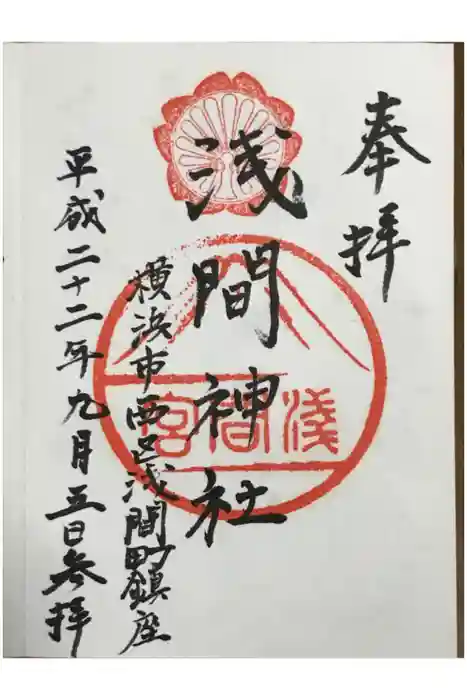 奉拝
浅間神社
浅間宮
横浜市西口浅間町鎮座
平成二十二年九月五日参拝